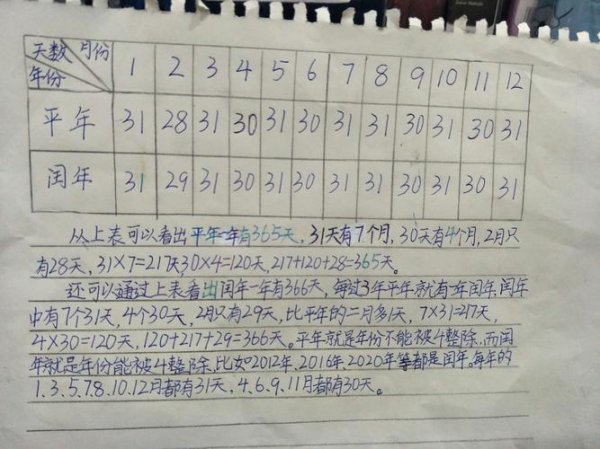 天数 月份
年份 1 2 3 4 5 6 7 8 9 10 11 12
平年 31 28 31 30 31 30 31 31 30 31 30 31
闰年 31 29 31 30 31 30 31 31 30 31 30 31
从上表可以看出平年一年有365天,31天有7个月,30天有4个月,2月只
有28天,31×7=217天,30×4=120天,217+120+28=365天。
还可以通过上表看出闰年一年有366天,每过3年平年就有一年闰年,闰年
中有7个31天,4个30天,2月只有29天,比平年的二月多1天,7×31=217天,
4×30=120天,120+217+29=366天。平年就是年份不能被4整除,而闰
年就是年份能被4整除,比如2012年、2016年、2020年等都是闰年。每年的
1.3.5.7.8.10.12月都有31天,4.6.9.11月都有30天。